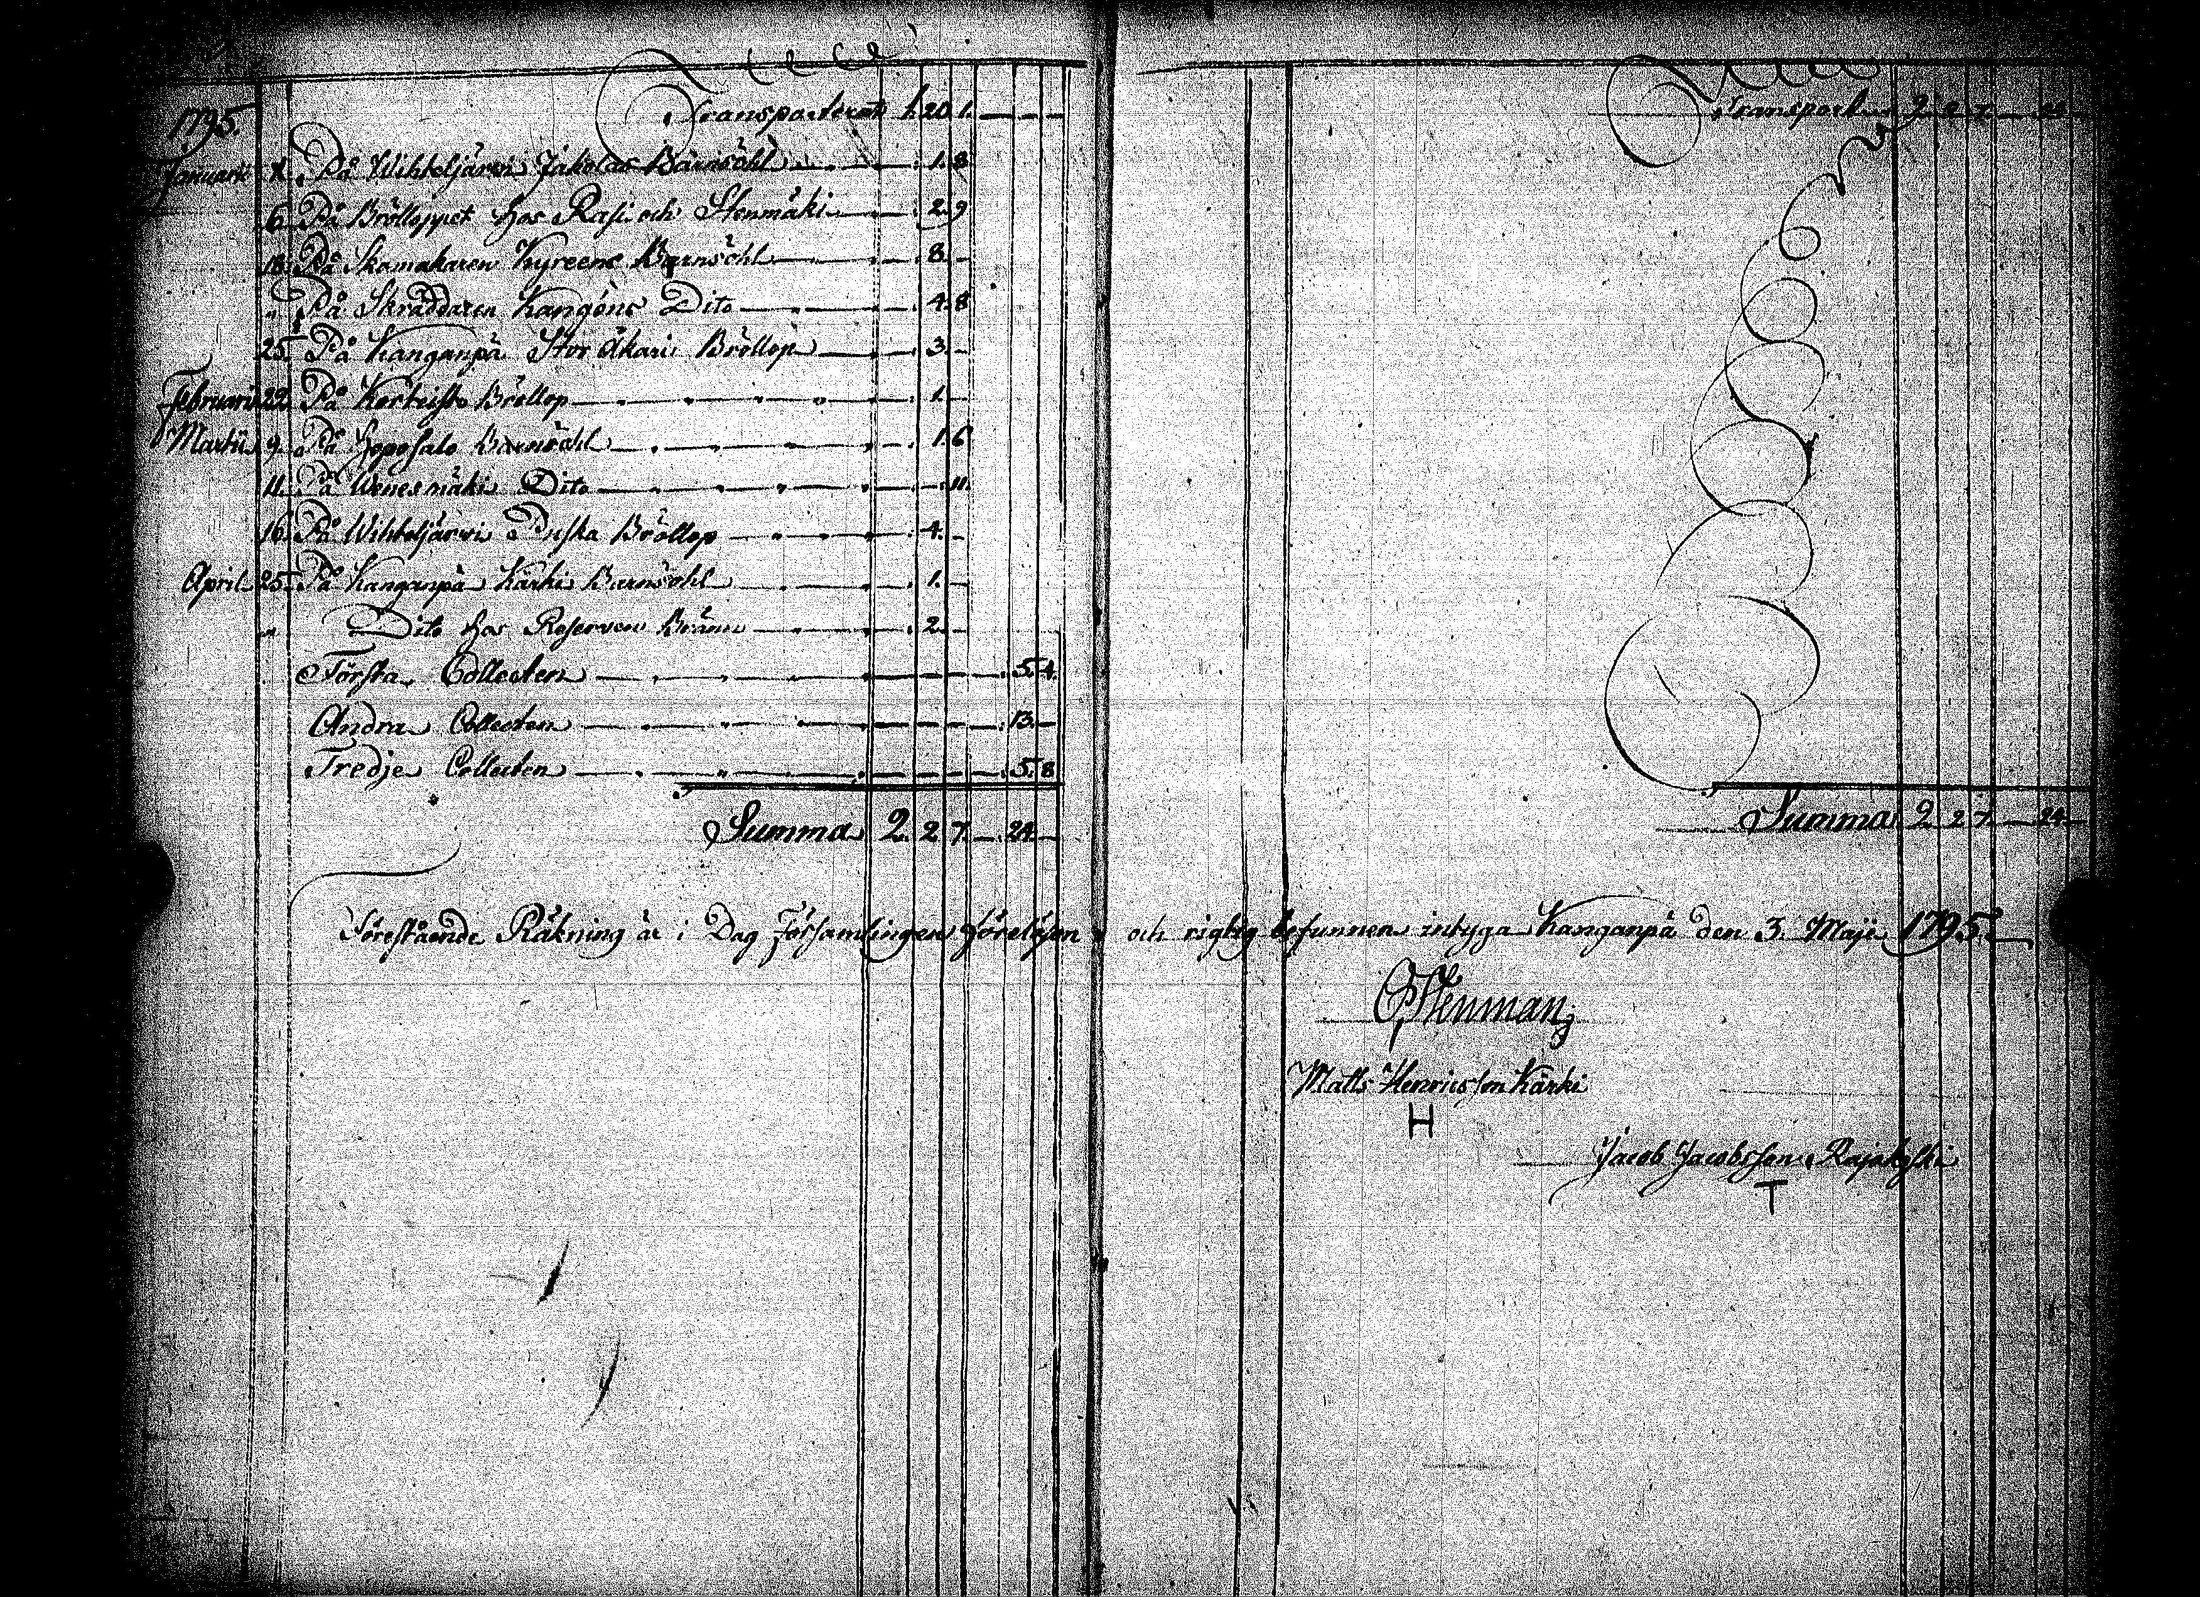 Transporterat 1. 20. 1. — — —
1795.
Januarii 1. På Wihteljärvi Jakolas Barnsöhl — 1. 8.
6. På Brölloppet hos Rasi och Stenmäki — 2. 9
18. På Skomakaren Kyreens Barnsöhl — 8. —
" På Skräddaren Kangöns Dito — 4. 8
25. På Kanganpä Stor Äkari Bröllop — 3. —
Februarii 22. På Korteisto Bröllop — 1. —
Martii 9. På Hoposalo Barnsöhl — 1. 6
11. På Wenesmäki Dito — 11.
16. På Wihteljärwi Puska Bröllop — 4. —
April 25. På Kanganpä Kärki Barnsöhl — 1. —
" Dito hos Reserven Bränn — 2. —
Första Collecten — 5. 4.
Andra Collecten — 13. —
Tredje Collecten — 5. 8.
Summa 2. 2 7. — 24. —
Transport 2. 2 7. — 24. —
Summa 2 2 7. — 24. —
Förestående Räkning är i Dag Församlingen föreläsen och rigtig befunnen intyga Kanganpä den 3. Maji 1795.
Stenman
Matts Henricsson Kärki
H
Jacob Jacobsson Rajakoski
T